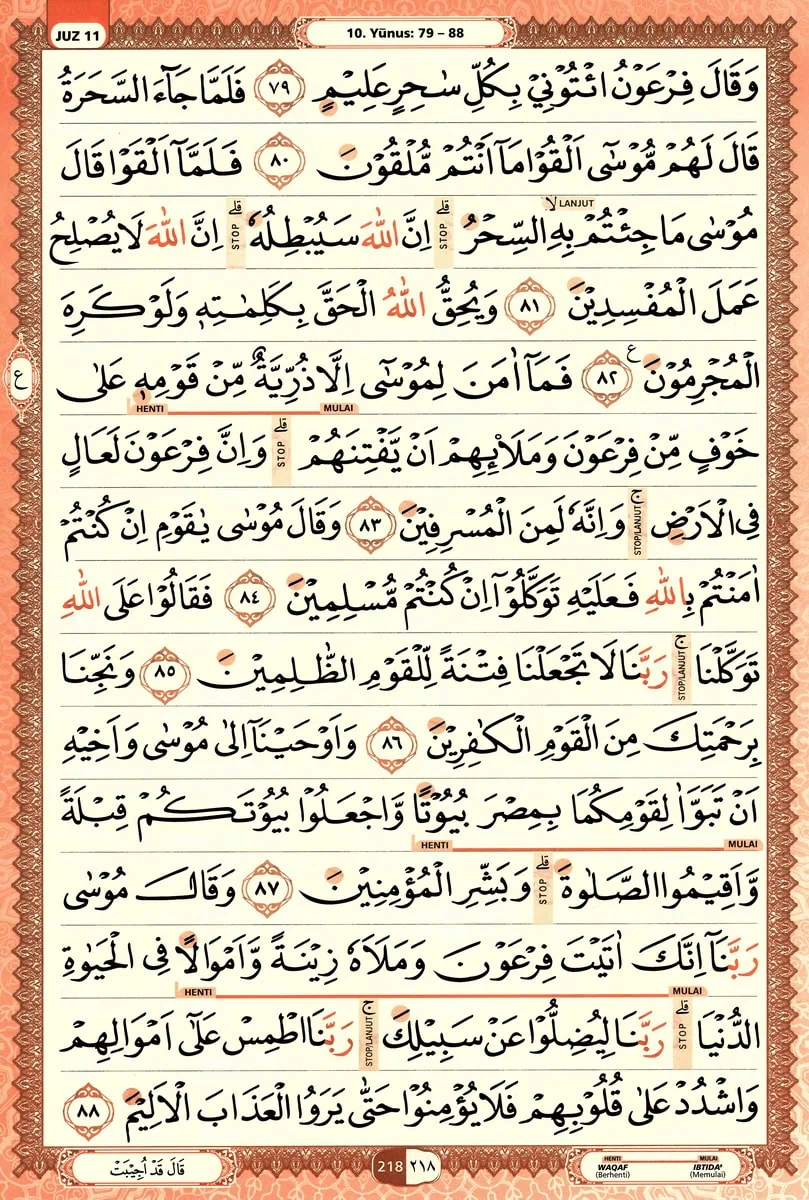 JUZ 11
10. Yūnus: 79 – 88
وَقَالَ فِرْعَوْنُ ائْتُوْنِيْ بِكُلِّ سٰحِرٍ عَلِيْمٍ ﴿٧٩﴾ فَلَمَّا جَاۤءَ السَّحَرَةُ
قَالَ لَهُمْ مُّوْسٰٓى اَلْقُوْا مَآ اَنْتُمْ مُّلْقُوْنَ ﴿٨٠﴾ فَلَمَّآ اَلْقَوْا قَالَ
لا LANJUT قلے STOP قلے STOP
مُوْسٰى مَا جِئْتُمْ بِهِ السِّحْرُ اِنَّ اللّٰهَ سَيُبْطِلُهٗ اِنَّ اللّٰهَ لَا يُصْلِحُ
عَمَلَ الْمُفْسِدِيْنَ ﴿٨١﴾ وَيُحِقُّ اللّٰهُ الْحَقَّ بِكَلِمٰتِهٖ وَلَوْ كَرِهَ
ع
الْمُجْرِمُوْنَ ࣖ ﴿٨٢﴾ فَمَآ اٰمَنَ لِمُوْسٰٓى اِلَّا ذُرِّيَّةٌ مِّنْ قَوْمِهٖ عَلٰى
MULAI HENTI
قلے STOP
خَوْفٍ مِّنْ فِرْعَوْنَ وَمَلَا۟ىِٕهِمْ اَنْ يَّفْتِنَهُمْ وَاِنَّ فِرْعَوْنَ لَعَالٍ
ج STOP/LANJUT
فِى الْاَرْضِ وَاِنَّهٗ لَمِنَ الْمُسْرِفِيْنَ ﴿٨٣﴾ وَقَالَ مُوْسٰى يٰقَوْمِ اِنْ كُنْتُمْ
اٰمَنْتُمْ بِاللّٰهِ فَعَلَيْهِ تَوَكَّلُوْٓا اِنْ كُنْتُمْ مُّسْلِمِيْنَ ﴿٨٤﴾ فَقَالُوْا عَلَى اللّٰهِ
ج STOP/LANJUT
تَوَكَّلْنَا رَبَّنَا لَا تَجْعَلْنَا فِتْنَةً لِّلْقَوْمِ الظّٰلِمِيْنَ ﴿٨٥﴾ وَنَجِّنَا
بِرَحْمَتِكَ مِنَ الْقَوْمِ الْكٰفِرِيْنَ ﴿٨٦﴾ وَاَوْحَيْنَآ اِلٰى مُوْسٰى وَاَخِيْهِ
اَنْ تَبَوَّاٰ لِقَوْمِكُمَا بِمِصْرَ بُيُوْتًا وَّاجْعَلُوْا بُيُوْتَكُمْ قِبْلَةً
MULAI HENTI
قلے STOP
وَّاَقِيْمُوا الصَّلٰوةَ وَبَشِّرِ الْمُؤْمِنِيْنَ ﴿٨٧﴾ وَقَالَ مُوْسٰى
رَبَّنَآ اِنَّكَ اٰتَيْتَ فِرْعَوْنَ وَمَلَاَهٗ زِيْنَةً وَّاَمْوَالًا فِى الْحَيٰوةِ
MULAI HENTI
قلے STOP ج STOP/LANJUT
الدُّنْيَا رَبَّنَا لِيُضِلُّوْا عَنْ سَبِيْلِكَ رَبَّنَا اطْمِسْ عَلٰٓى اَمْوَالِهِمْ
وَاشْدُدْ عَلٰى قُلُوْبِهِمْ فَلَا يُؤْمِنُوْا حَتّٰى يَرَوُا الْعَذَابَ الْاَلِيْمَ ﴿٨٨﴾
ع
قَالَ قَدْ اُجِيْبَتْ
218 ٢١٨
HENTI MULAI
WAQAF IBTIDA'
(Berhenti) (Memulai)